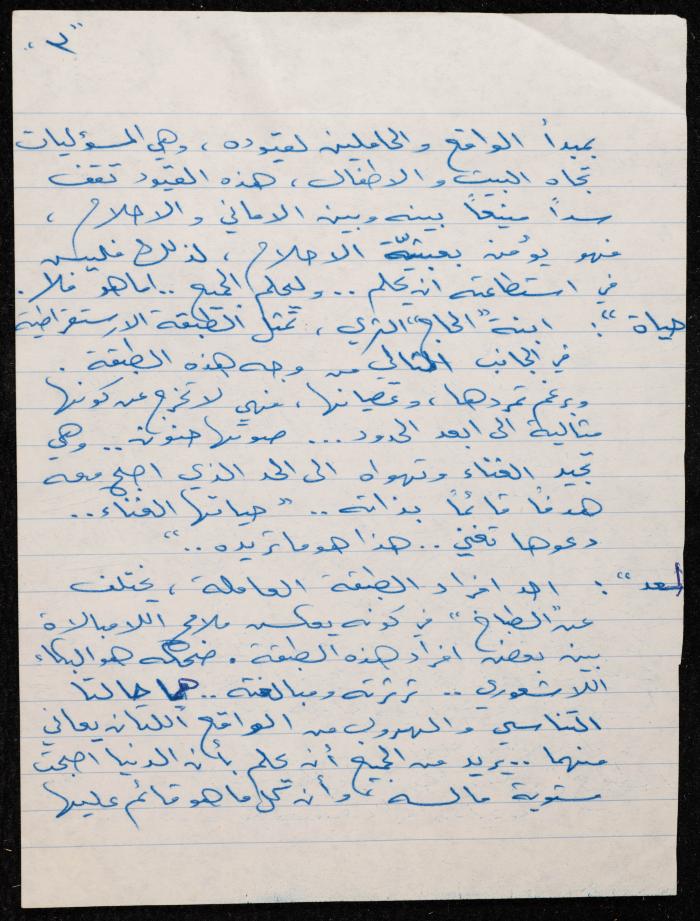 "٣"
بمبدأ الواقع والحاملين لقيوده ، وهي المسؤوليات
تجاه البيت والاطفال ، هذه القيود تقف
سداً منيعاً بينه وبين الاماني والاحلام ،
فهو يؤمن بعبثيّة الاحلام ، لذلك فليس
في استطاعته ان يحلم .. وليحلم الجميع .. اما هو فلا .
حياة " : ابنة "الحاج" الثري ، تمثل الطبقة الارستقراطية
في الجانب المثالي من وجه هذه الطبقة .
وبرغم تمردها ، وعصيانها ، فهي لا تخرج عن كونها
مثالية الى ابعد الحدود ... صوتها حنون .. وهي
تجيد الغناء وتهواه الى الحد الذي اصبح معه
هدفاً قائماً بذاته .. " حياتها الغناء ..
دعوها تغني .. هذا هو ما تريده .. "
سعد " : احد افراد الطبقة العاملة ، يختلف
عن "الطباخ" في كونه يعكس ملامح اللامبالاة
بين بعض افراد هذه الطبقة . ضحكه هو البكاء
اللاشعوري .. ثرثرته ومبالغته .. هما حالتا
التناسي والهروب من الواقع اللتان يعاني
منهما .. يريد من الجميع أن يحلم بأن الدنيا اصبحت
مستوية ، وأن كل ما هو قائم عليها